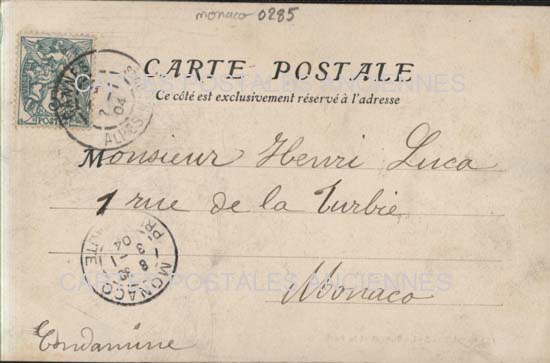 monaco 0285
CARTE POSTALE
Ce côté est exclusivement réservé à l'adresse
POSTES
04
ALPES
Monsieur Henri Luca
1 rue de la Turbie
MONACO
PRINCIPAUTE
8
3
04
Monaco
Condamine
CARTES POSTALES ANCIENNES
CARTES POSTALES ANCIENNES